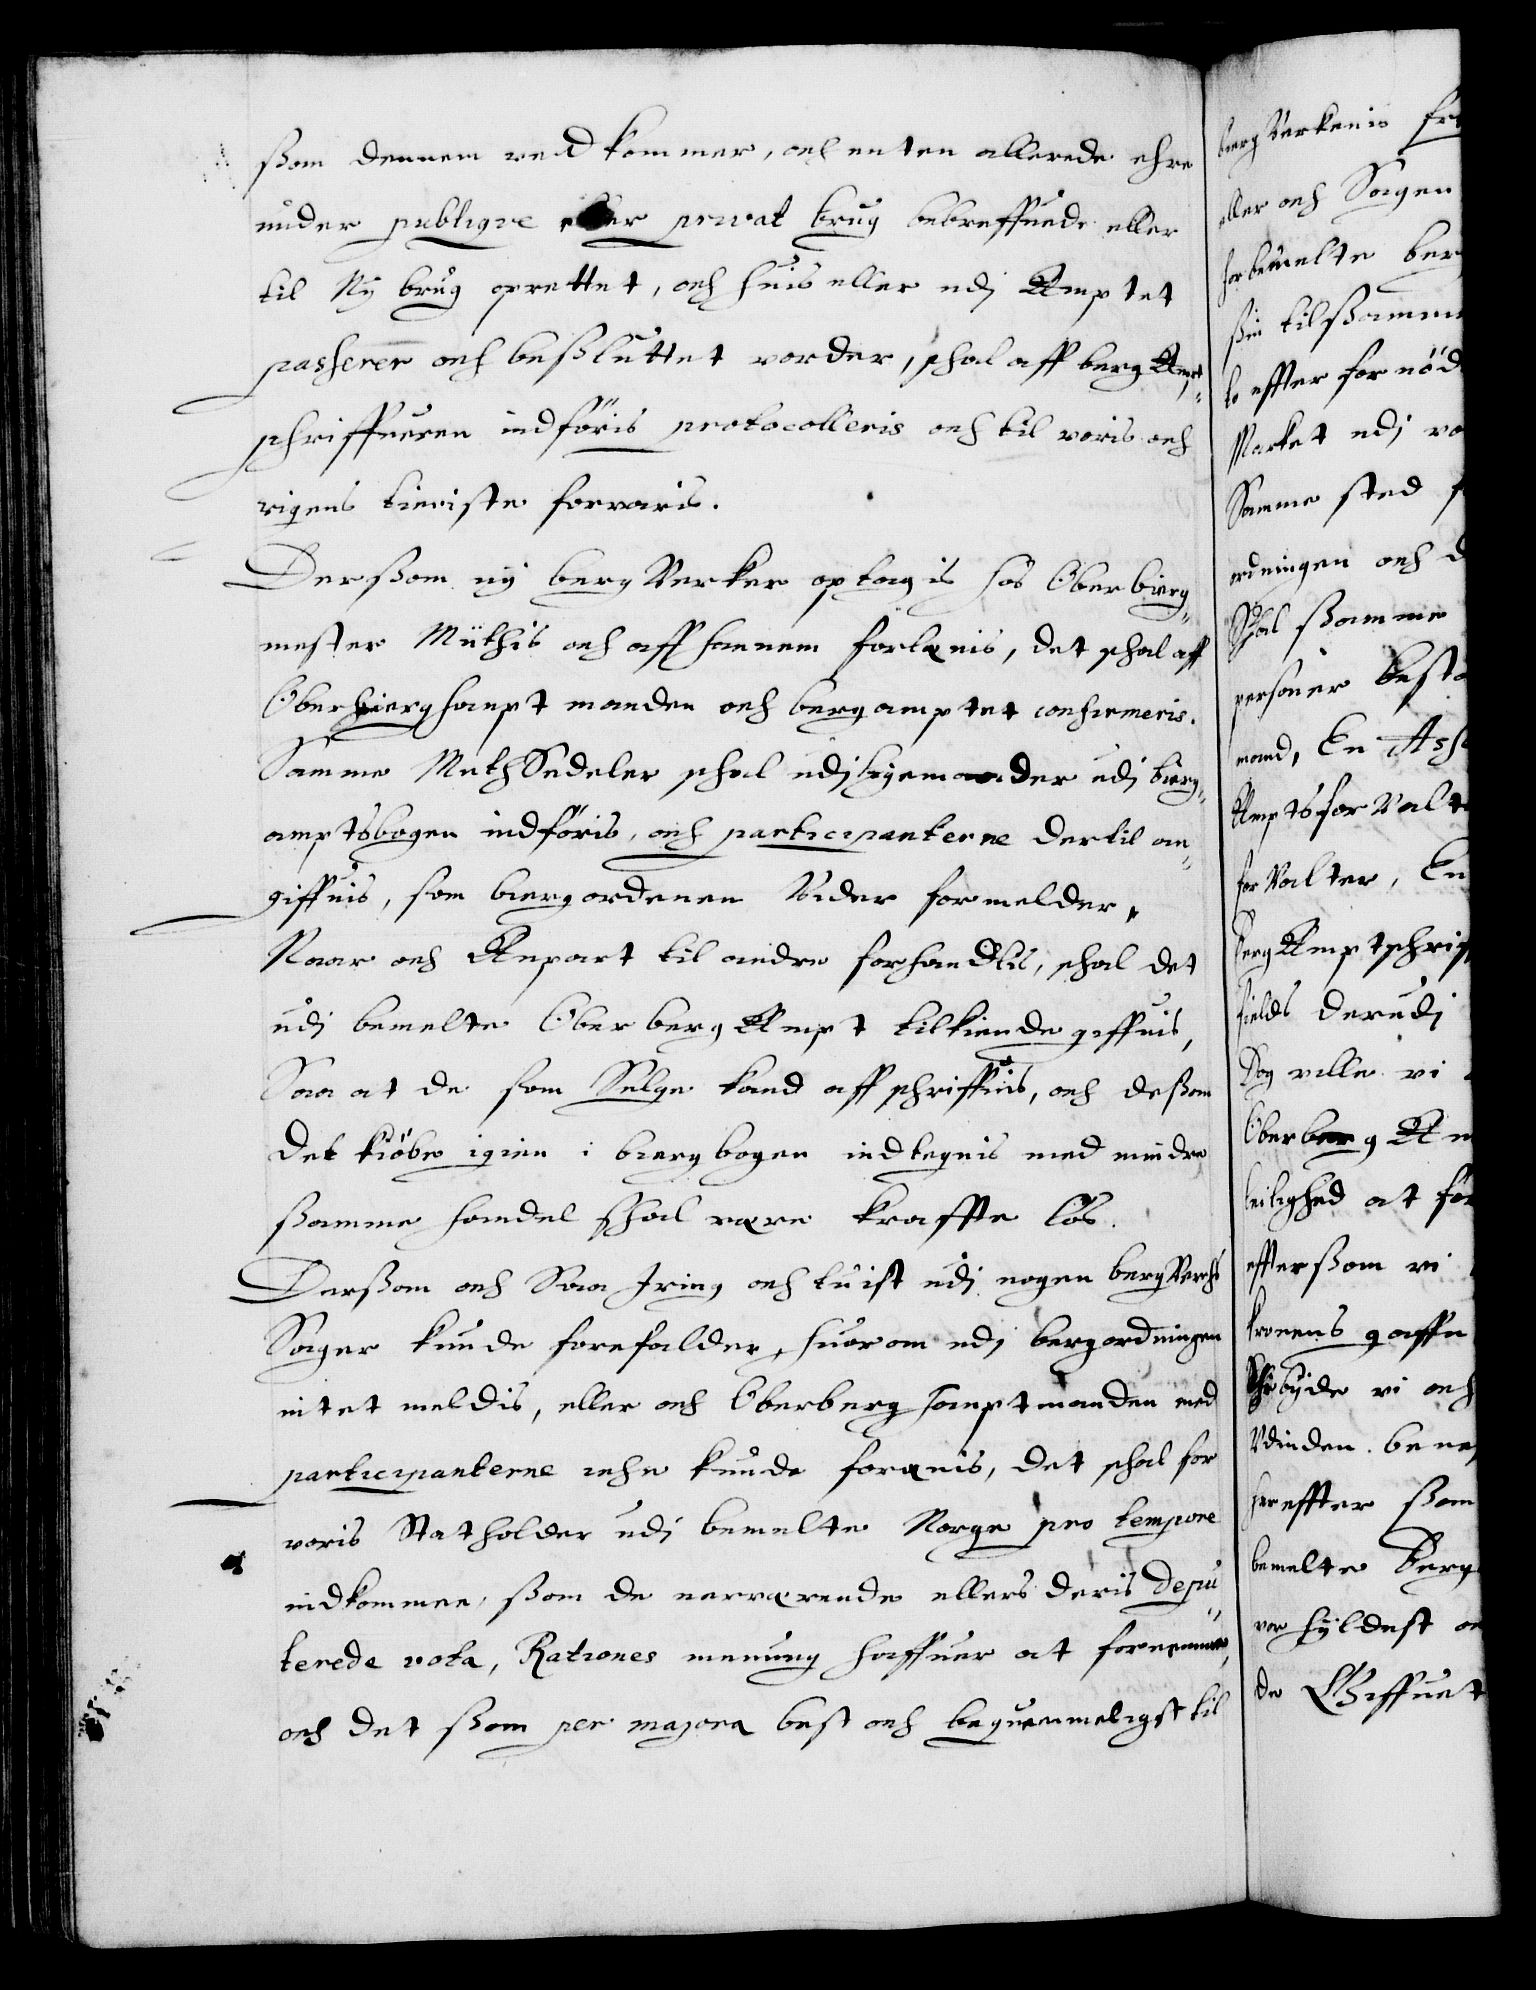 ßom dennem ved kommer, och enten allerede ehre
under publiqve eller privat brug bebreffuede eller
til Ny brug oprettet, och huis eller udj Amptet
passerer och beßluttet vorder, schal aff berg Ampt-
schriffueren indföris protocolleris och til voris och
rigens tieniste forvaris.
Derßom ny berg Verker optagis hos Oberbierg-
mester Müthis och aff hannem forlænis, det schal aff
Oberbierghauptmanden och bergamptet confirmeris.
Samme MuthSedeler schal udj ligemaader udj bierg-
amptsbogen indföris, och participanterne dertil an-
giffuis, som biergordenen Vider formelder,
Naar och Anpart til andre forhandlis, schal det
udj bemelte Ober berg Ampt tilkiende giffuis,
Saa at de som Selge kand aff schriffuis, och deßom
det kiöbe igien i biergbogen indtegnis med mindre
ßamme handel schal være kraffte lös.
Derßom och Saa Iring och tuist udj nogen bergVerchs
Sager kunde forefalder, huorom udj bergordningen
intet meldis, eller och Oberberghauptmanden med
participanterne iche kunde forænis, det schal for
voris Statholder udj bemelte Norge pro tempore
indkommer, ßom de nerværende ellers deris depu-
terede vota, Rationes menung haffuer at fornemme,
och det ßom per majora best och beqvemmeligst til
bierg Verkenis
eller och Sagen
forbemelte
ßin tilßamm
effter for nöd
Market udj vo
Samme sted
ordningen och
Schal ßamme
personer
mand, En
Ampts for Valt
for Valter, En
berg Amptschrif
fields derudj
Dog ville vi
Oberberg Am
leilighed at för
effterßom vi
kronens gaffn
byde vi och
her effter ßom
bemelte Berg
vor hyldest
de Giffuet